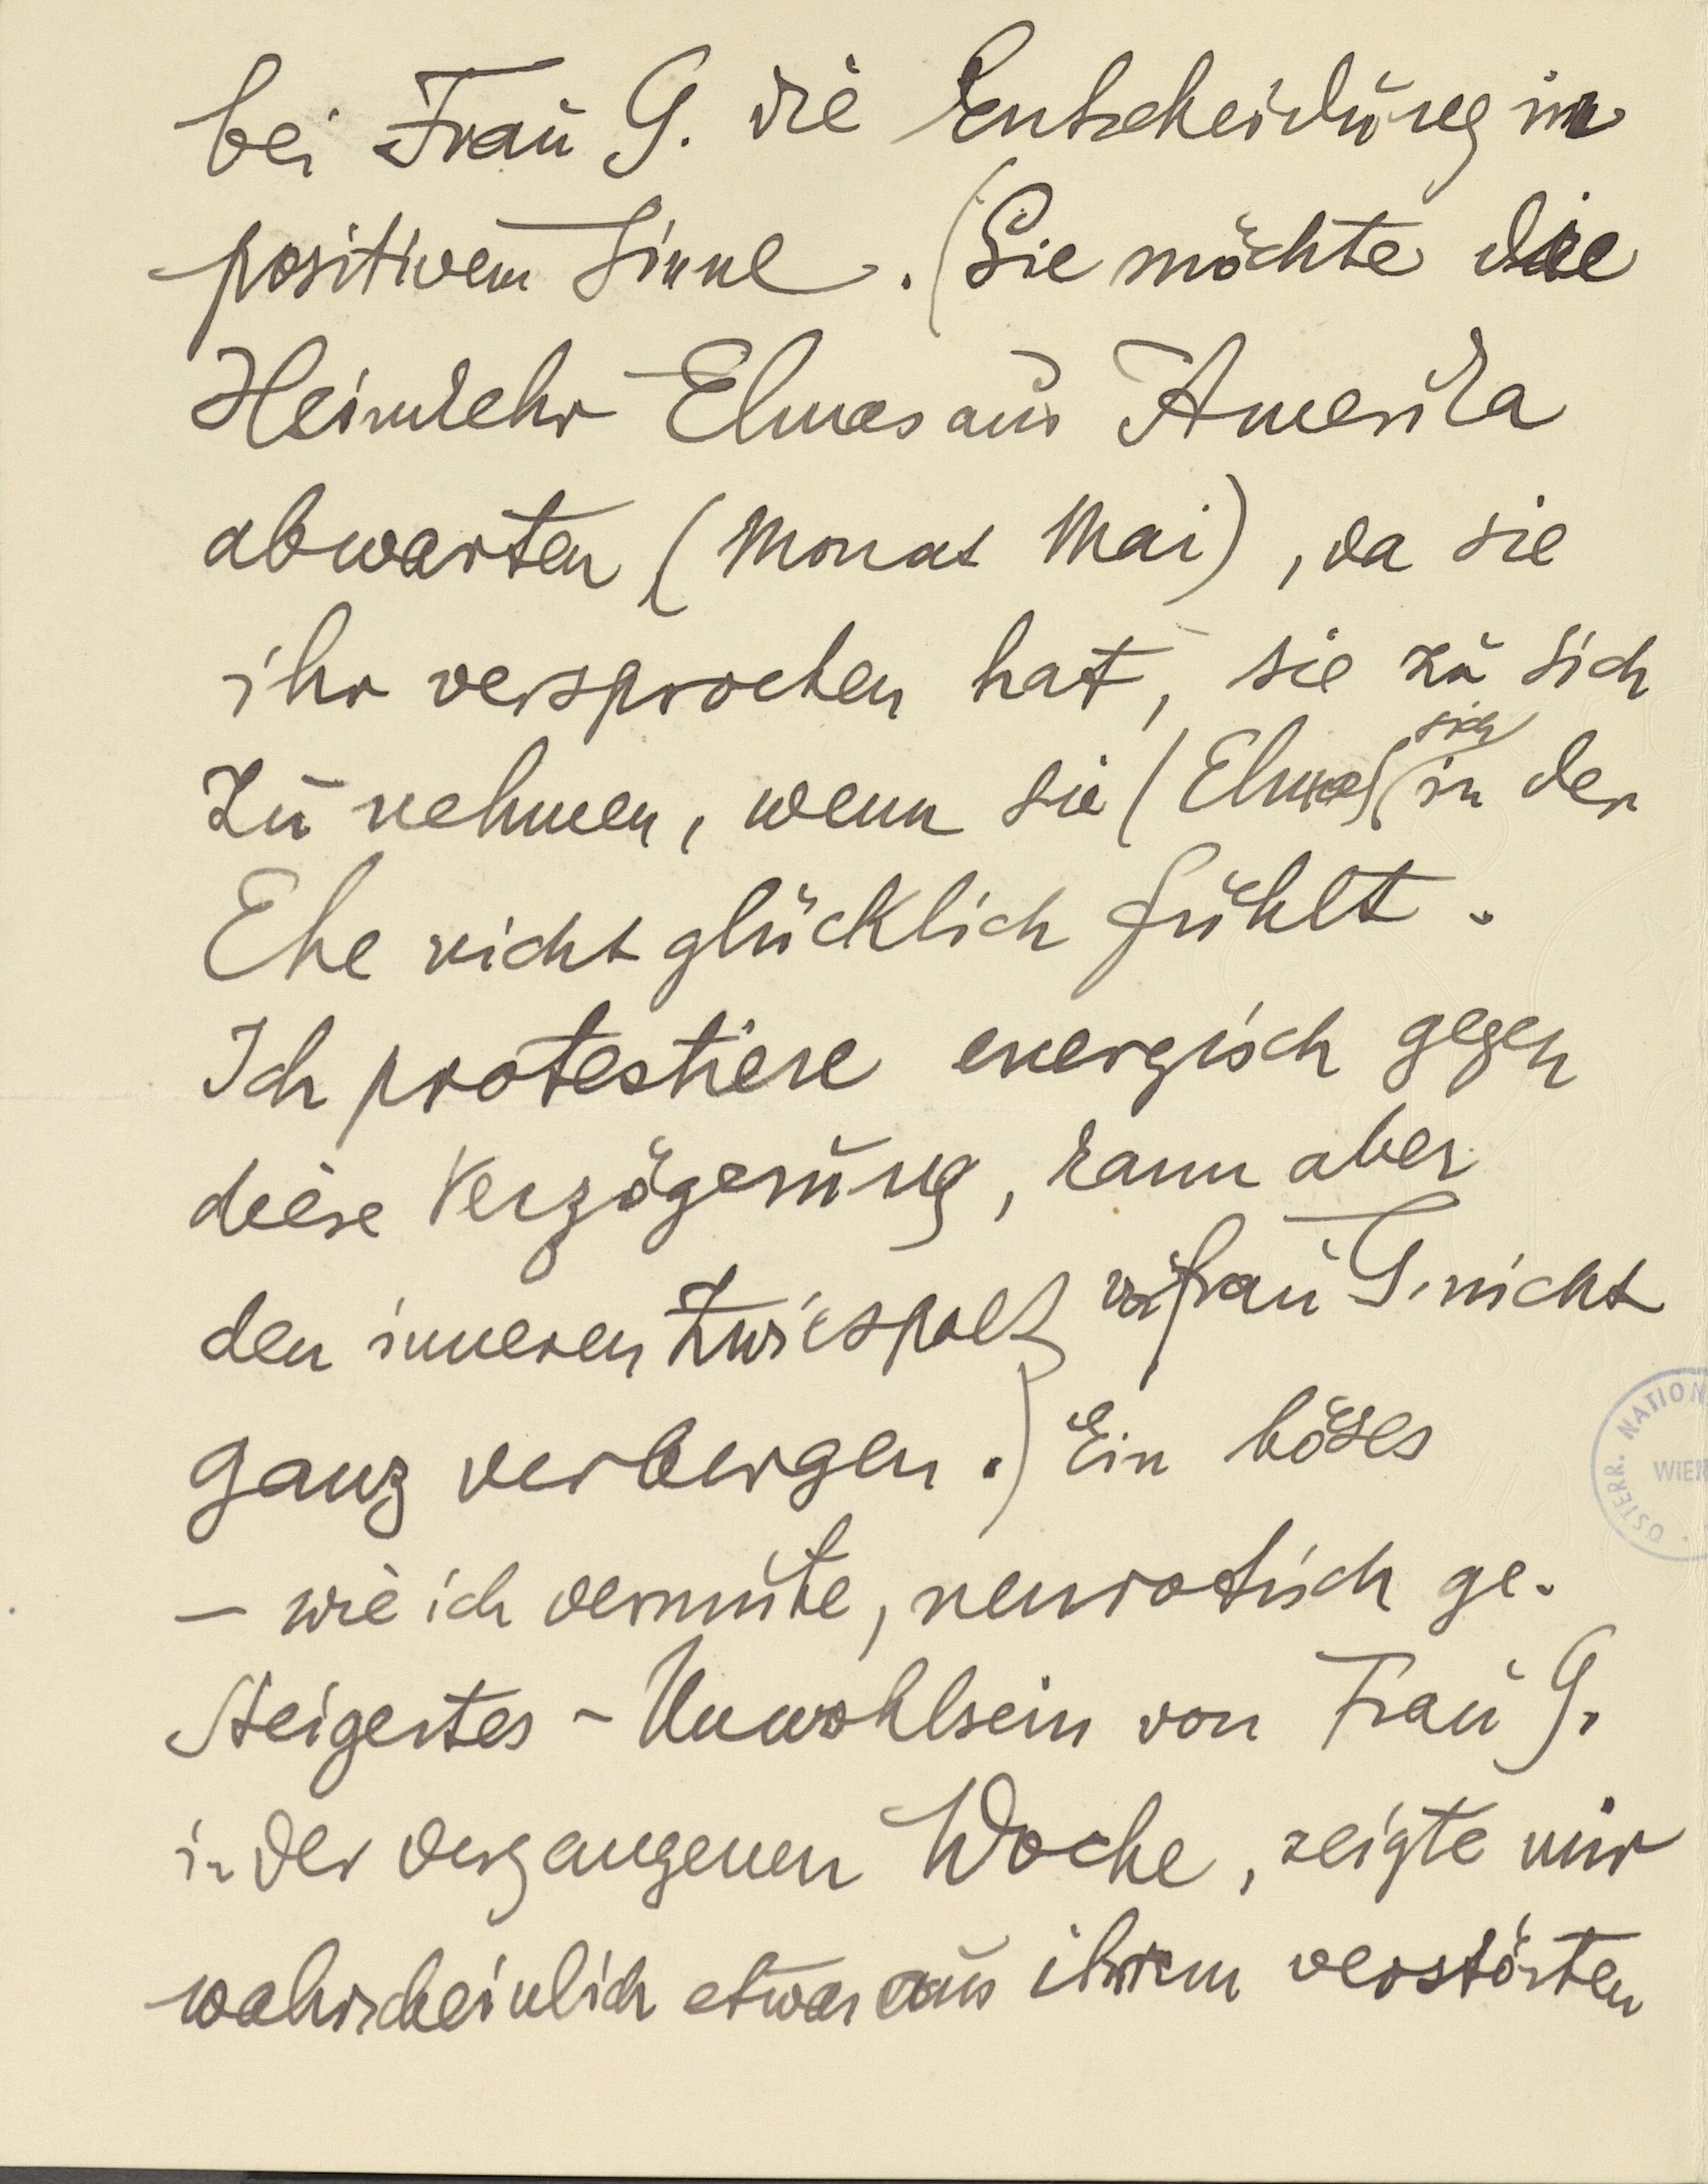 bei Frau G. die Entscheidung im
positivem Sinne. (Sie möchte die
Heimkehr Elmas aus Amerika
abwarten (Monat Mai), da sie
ihr versprochen hat, sie zu sich
sich
zu nehmen, wenn sie (Elma) in der
Ehe nicht glücklich fühlt.
Ich protestiere energisch gegen
diese Verzögerung, kann aber
den inneren Zwiespalt vor Frau G. nicht
ganz verbergen.) Ein böses
– wie ich vermute, neurotisch ge-
steigertes – Unwohlsein von Frau G.
in der vergangenen Woche, zeigte mir
wahrscheinlich etwas aus ihrem verstörten
ÖSTERR. NATION
WIEN